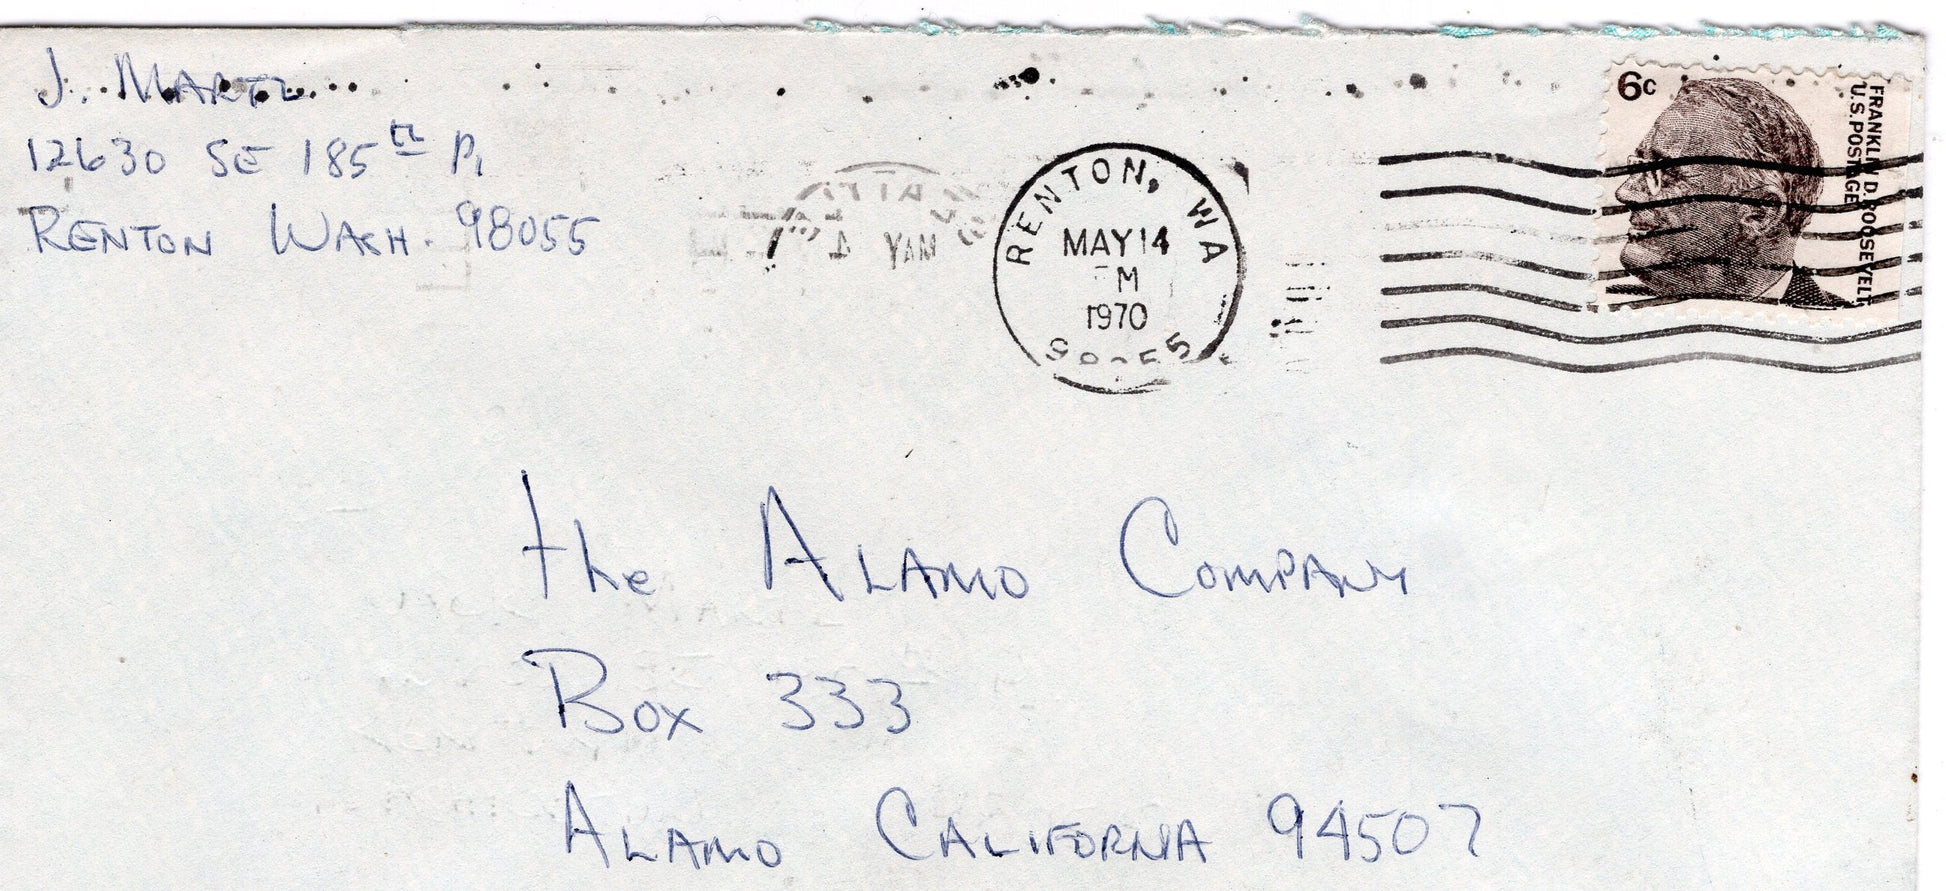 J. MARTZ
12630 SE 185th Pl
RENTON WASH. 98055
RENTON, WA
MAY 14
PM
1970
98055
6c
FRANKLIN D. ROOSEVELT
U.S. POSTAGE
MAY
the ALAMO COMPANY
BOX 333
ALAMO CALIFORNIA 94507